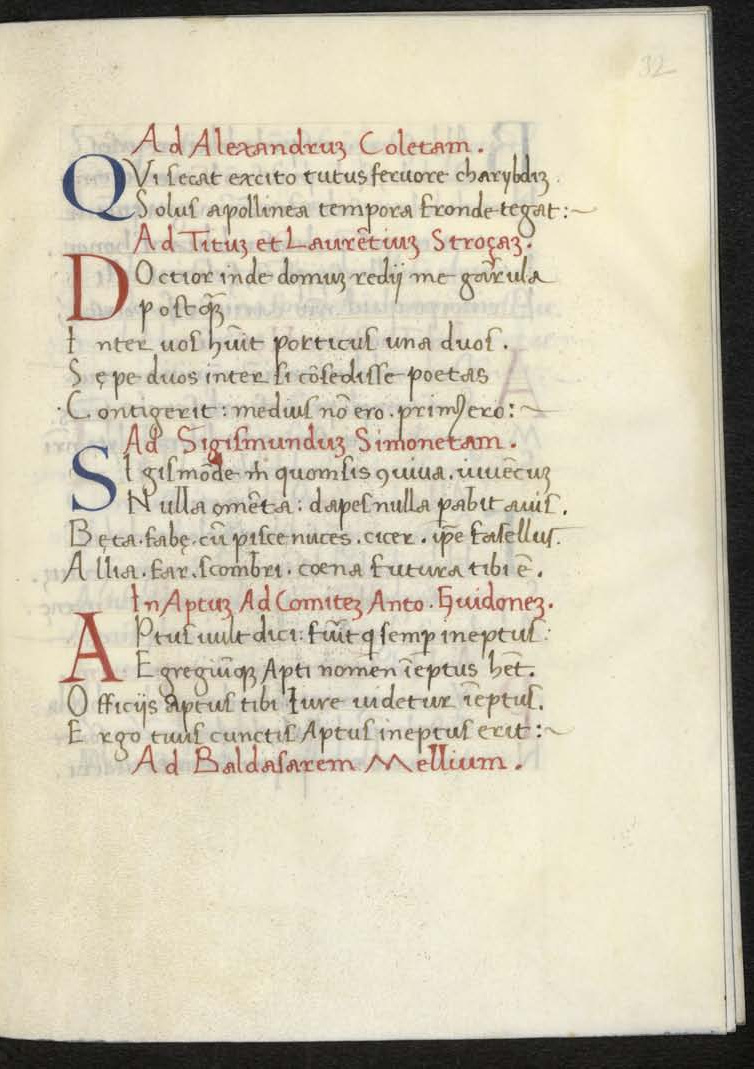 32
Ad Alexandruꝫ Coletam.
QVi secat excito tutus feruore charybdiꝫ.
Solus apollinea tempora fronde tegat:~
Ad Tituꝫ et Laurētiuꝫ Stroçaꝫ.
DOctior inde domuꝫ redij me garrula
postqꝫ
Inter uos hūit porticus una duos.
Sępe duos inter si cōsedisse poetas
Contigerit: medius nō ero. primꝰ ero:~
Ad Sigismunduꝫ Simonetam.
SIgismōde m̄ quom sis ꝯuiua. iuuēcuꝫ
Nulla omēta: dapes nulla pabit auis.
Bęta. fabę. cū pisce nuces. cicer. ip̄e fasellus.
Allia. far. scombri. coena futura tibi ē.
In Aptuꝫ Ad Comiteꝫ Anto. Guidoneꝫ.
APtus uult dici: fūit q semp ineptus:
Egregiūqꝫ Apti nomen īeptus h̄et.
Officijs aptus tibi Iure uidetur īeptus.
Ergo tuus cunctis Aptus ineptus erit:~
Ad Baldasarem Mellium.